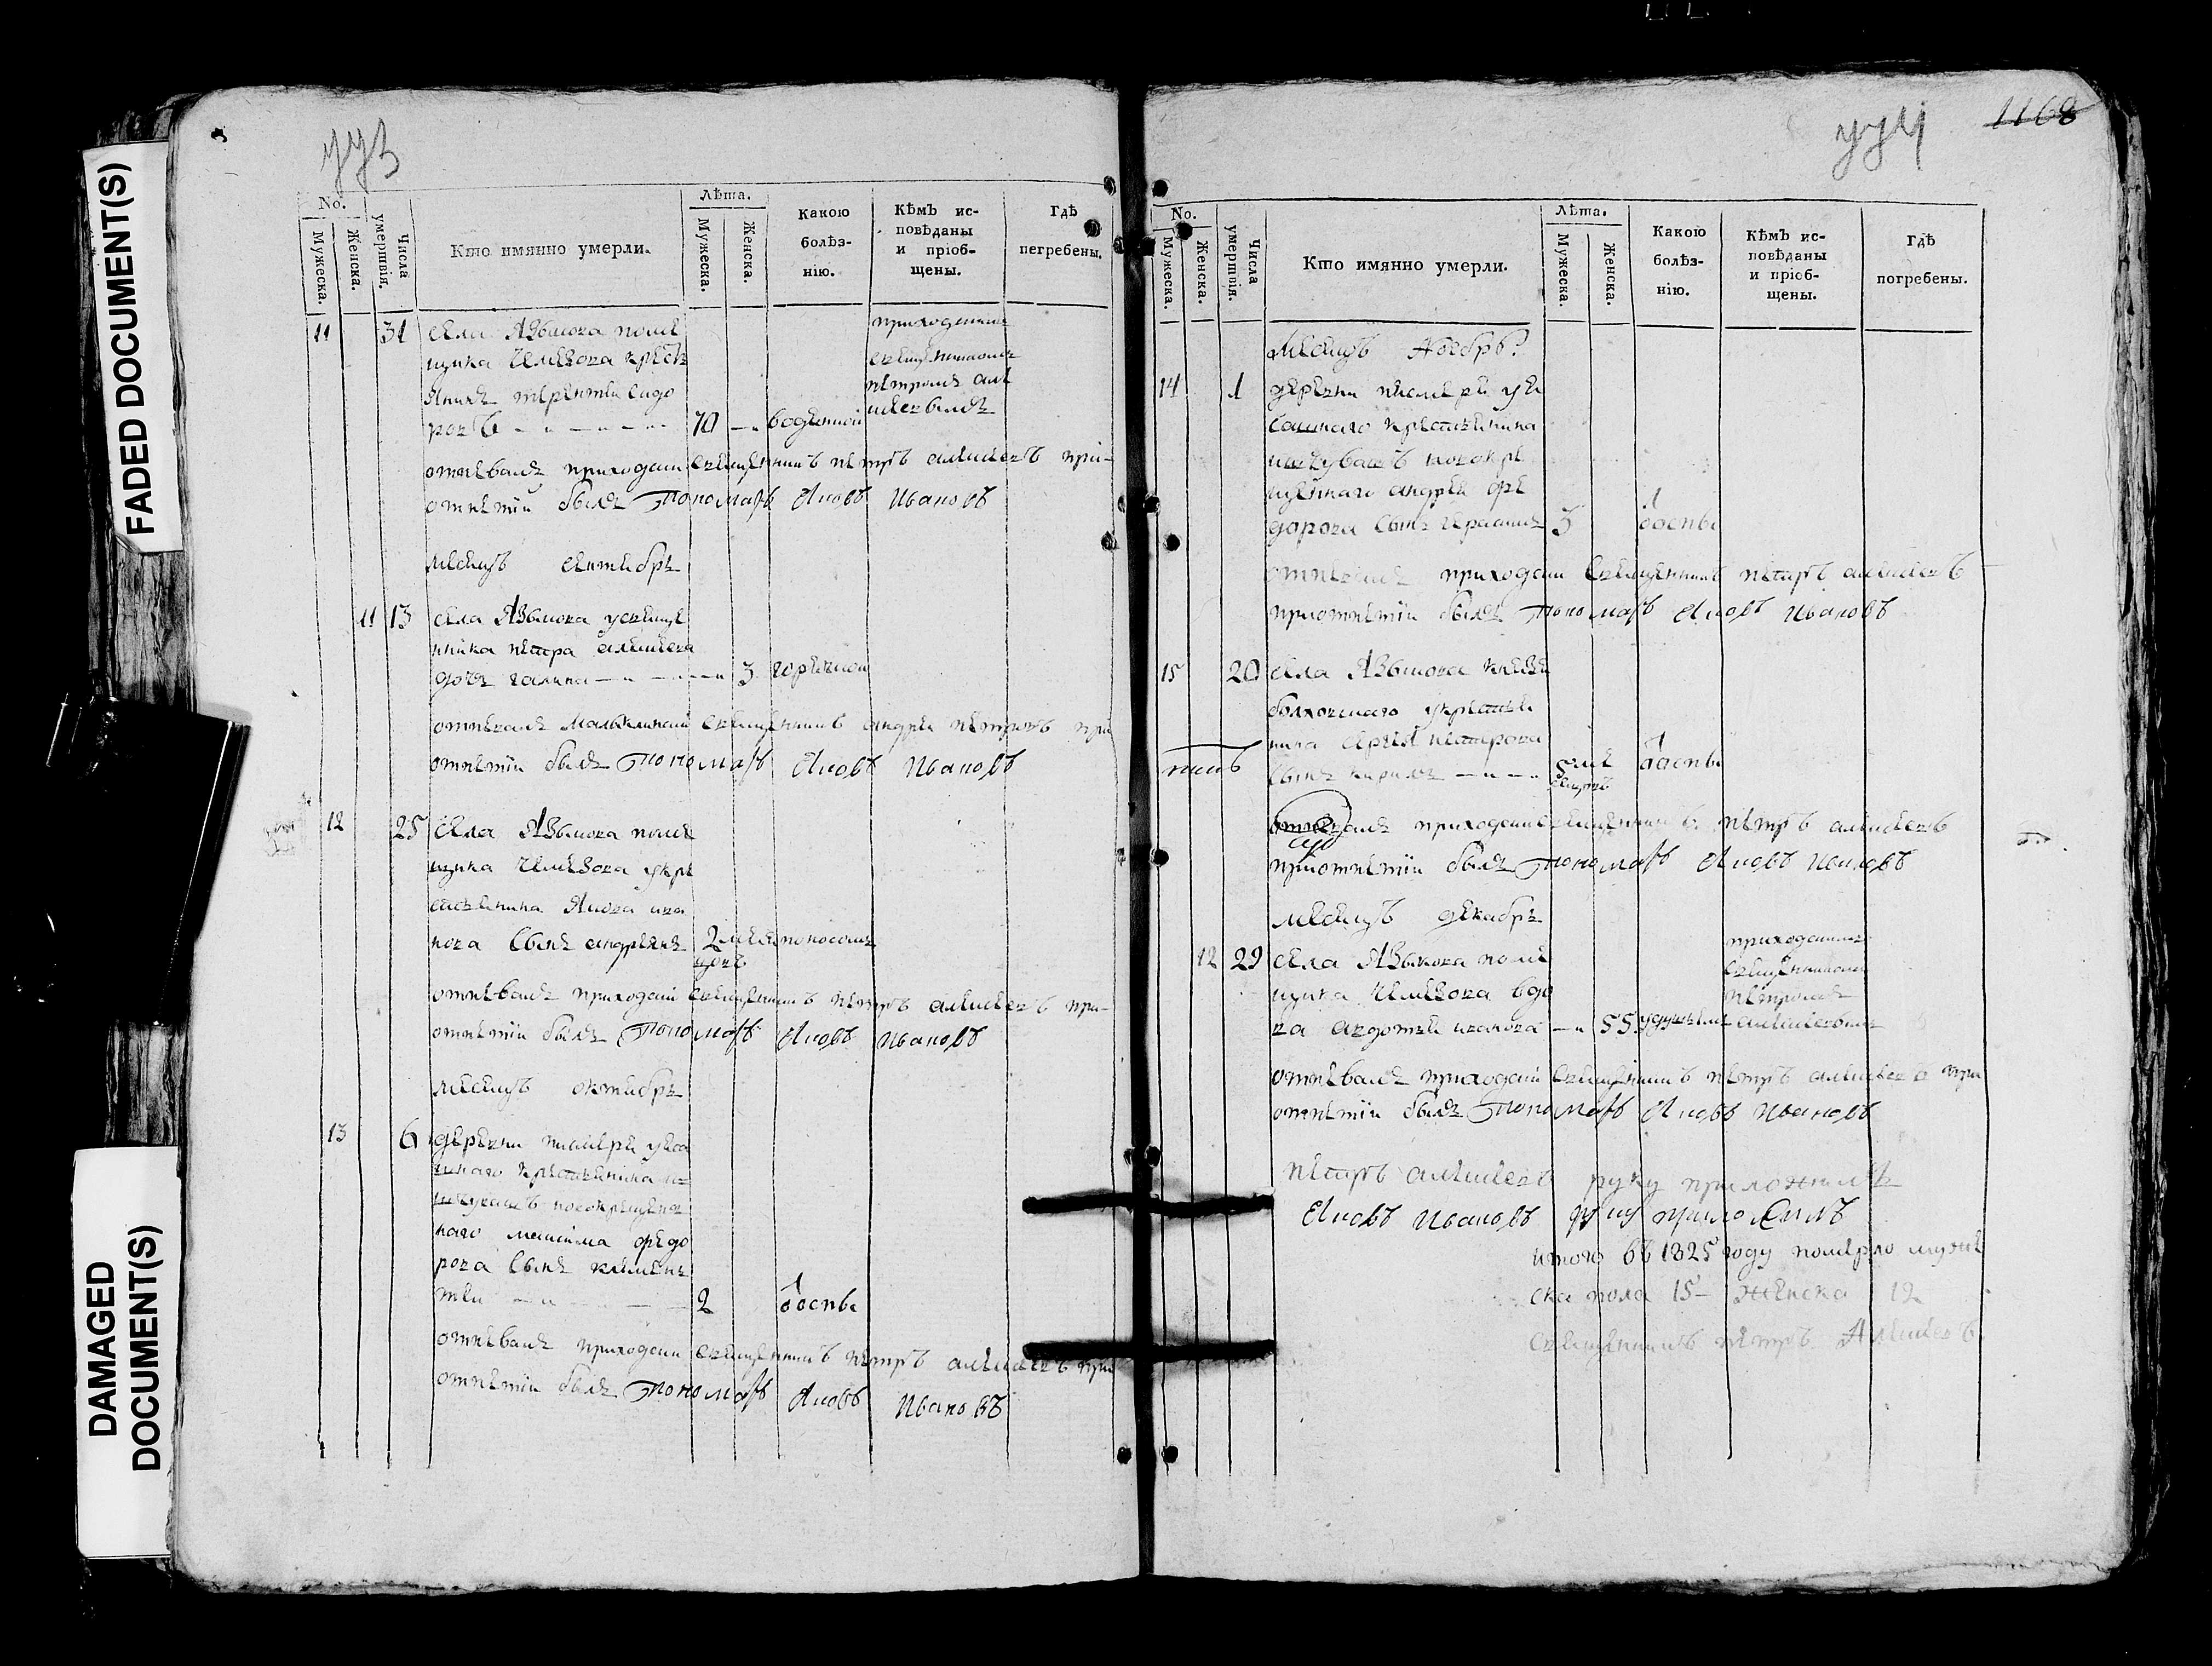 FADED DOCUMENT(S)
DAMAGED
DOCUMENT(S)
No.
Мужеска.
Женска.
Числа
умертвія.
Кто имянно умерли.
Лѣта.
Мужеска.
Женска.
Какою
болѣз-
нію.
Кѣмъ ис-
повѣданы
и пріоб-
щены.
Гдѣ
погребены.
11 31 села Языкова поме
щика крестъ
янинъ терентеи сидо
ровъ 70 водяной
приходскимъ
священникомъ
петромъ але
ѯеевымъ
отпевалъ приходски священникъ петръ алеѯеевъ при
отпетіи былъ Пономарь Яковъ Ивановъ
месецъ сентябрь
11 13 села Языкова у свяще
нника петра алеѯеева
дочь галина 3 горячкой
отпевалъ священникъ андреи петровъ при
отпетіи былъ Пономарь Яковъ Ивановъ
12 25 села Языкова поме
щика у кре
стьянина Якова ива
нова сынъ андреянъ 2 меся
цовъ
поносомъ
отпевалъ приходскій священникъ петръ алеѯеевъ при
отпетіи былъ Пономарь Яковъ Ивановъ
месецъ октябрь
13 6 деревни
крестьянина и
новокрещен
наго маѯима федо
рова сынъ клемен
теи 2 воспы
отпевалъ приходски священникъ петръ алеѯеевъ при
отпетіи былъ Пономарь Яковъ Ивановъ
1168
No.
Мужеска.
Женска.
Числа
умертвія.
Кто имянно умерли.
Лѣта.
Мужеска.
Женска.
Какою
болѣз-
нію.
Кѣмъ ис-
повѣданы
и пріоб-
щены.
Гдѣ
погребены.
Месецъ Ноебрь
14 1 деревни
крестьянина
изчувашъ новокре
щеннаго андрея фе
дорова сынъ герасимъ 3 воспы
отпевалъ приходски священникъ петръ алеѯеевъ
приотпетіи былъ Пономарь Яковъ Ивановъ
15 20 села Языкова князя
у крестья
нина сергея петрова
сынъ кирилъ 5 ме
сецовъ
воспы
отпевалъ приходски священникъ петръ алеѯеевъ
приотпетіи былъ Пономарь Яковъ Ивановъ
месецъ декабрь
12 29 села Языкова поме
щика вдо
ва авдотея иванова 55 удушьемъ
приходскимъ
священникомъ
петромъ
алеѯеевымъ
отпевалъ приходскій священникъ петръ алеѯеевъ при
отпетіи былъ Пономарь Яковъ Ивановъ
петръ алеѯеевъ руку приложилъ
Яковъ Ивановъ руку приложилъ
итого въ 1825 году померло муже
ска пола 15 женска 12
священникъ петръ Алеѯеевъ